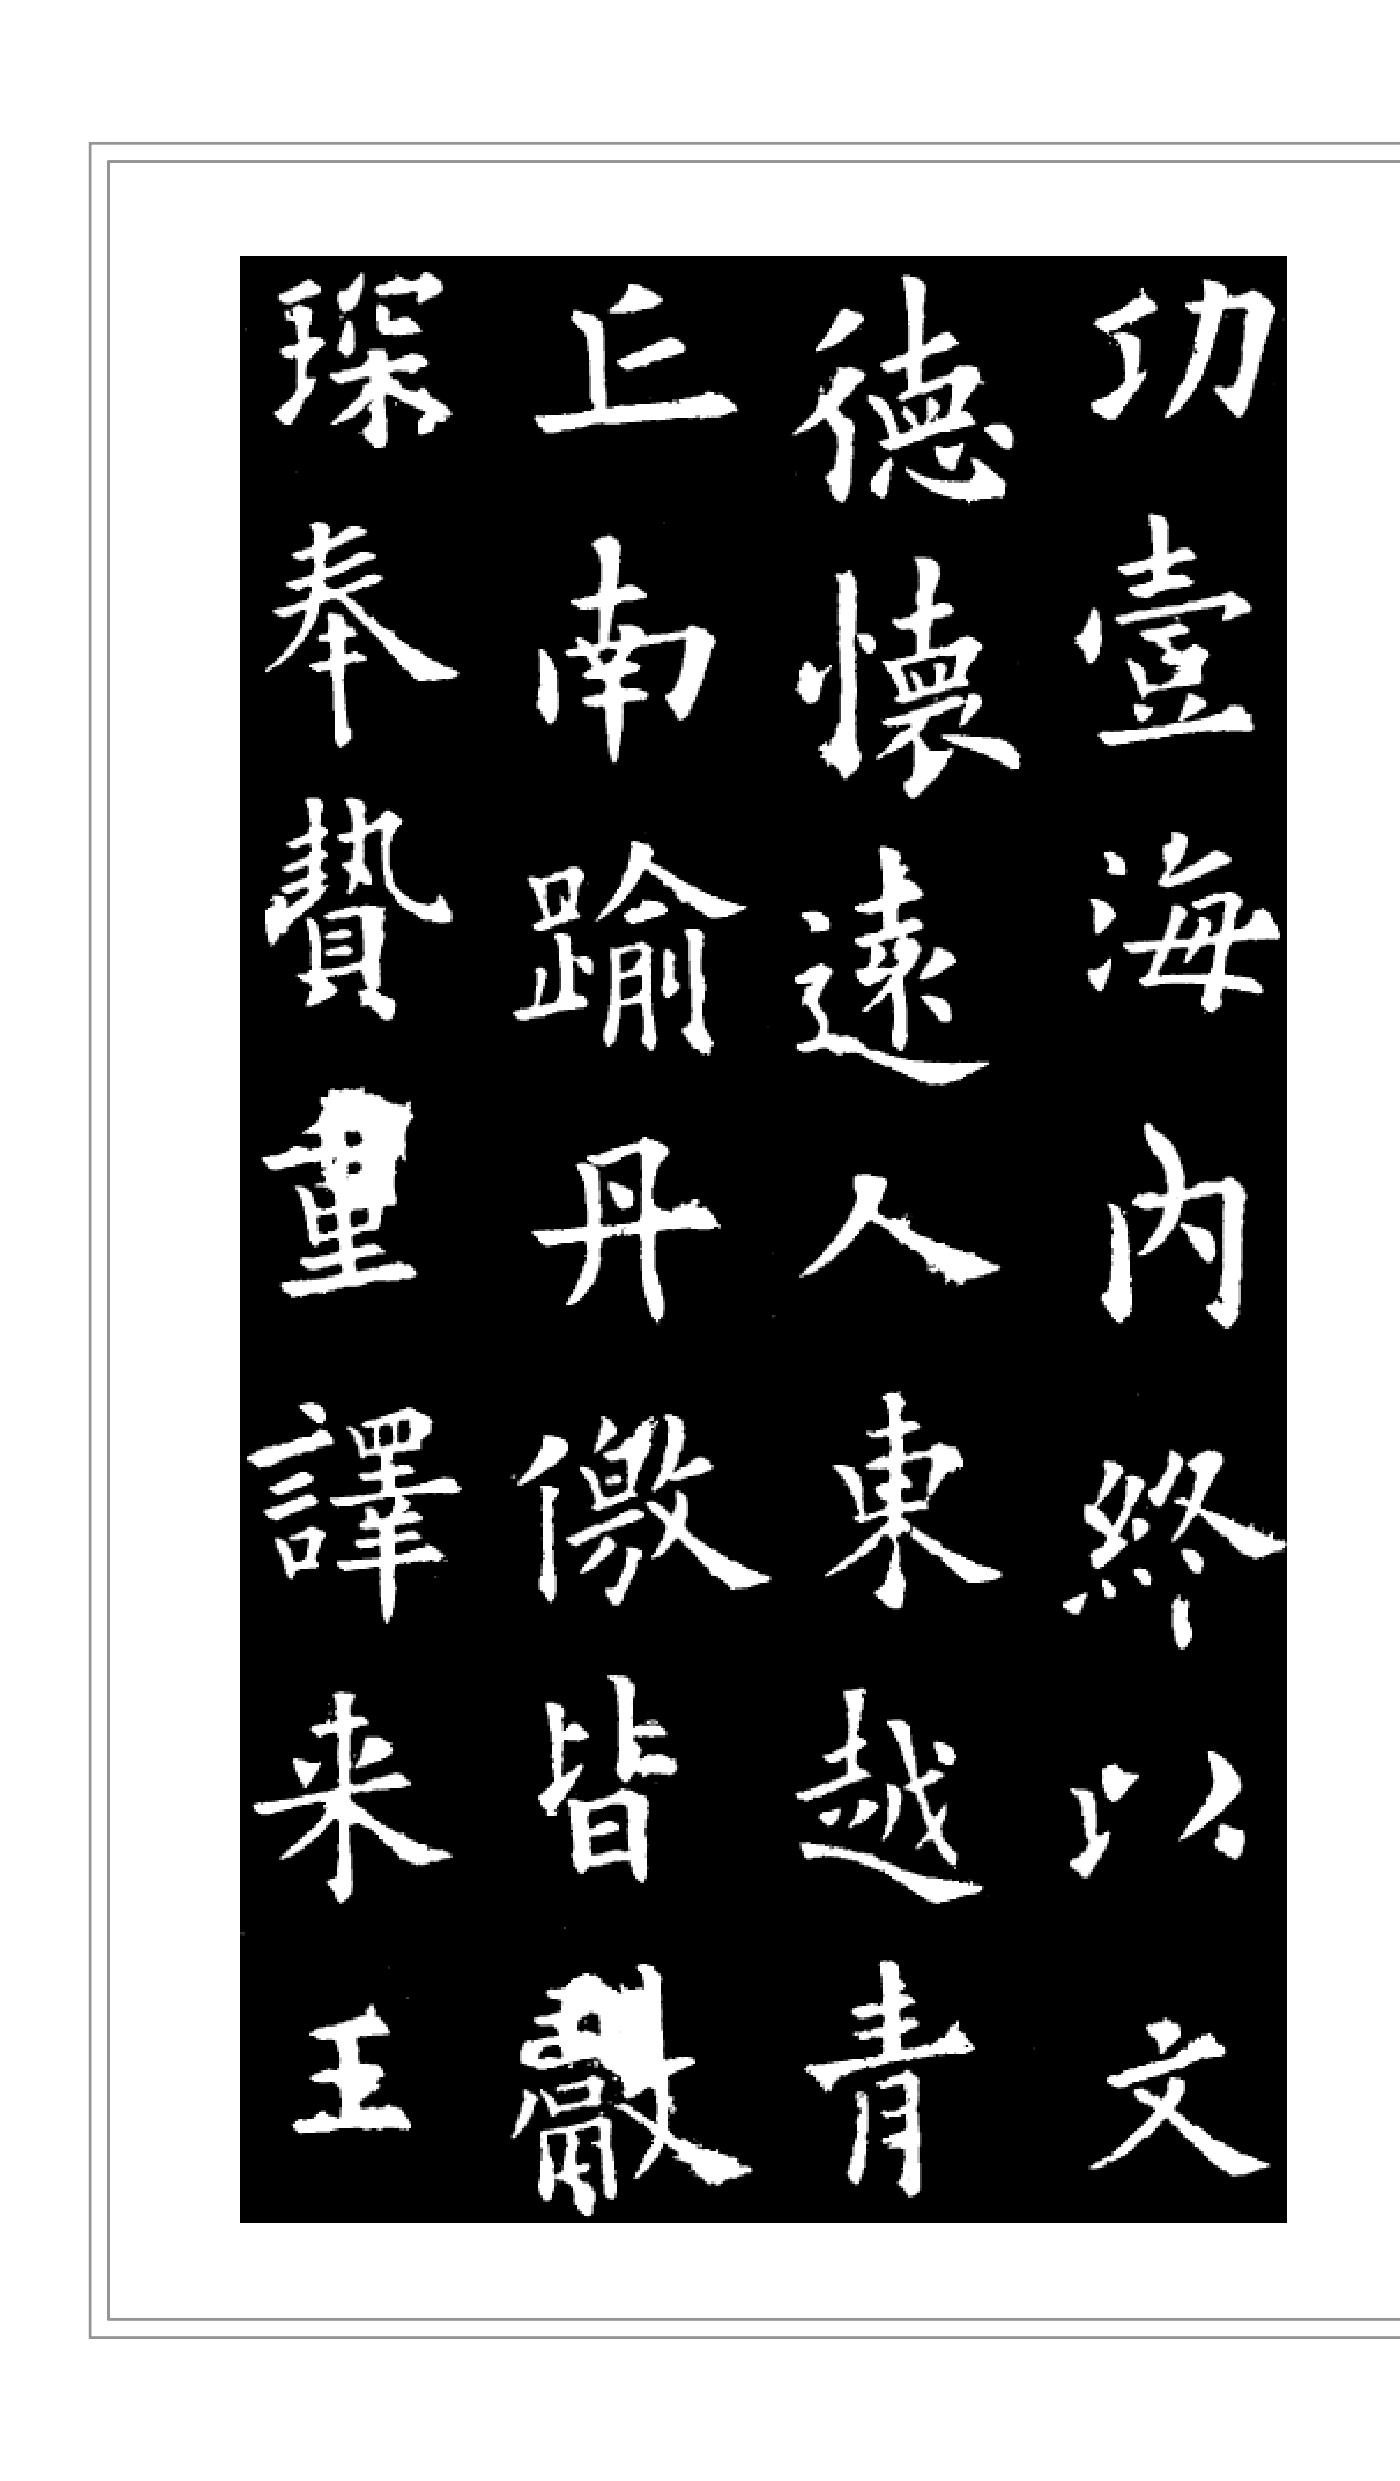 功壹海內終以文
德懷遠人東越青
丘南踰丹徼皆獻
琛奉贄重譯来王